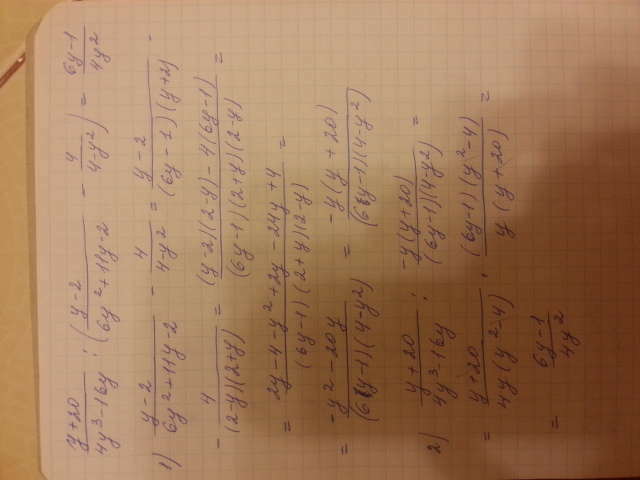 (y+20)/(4y³-16y) : ((y-2)/(6y²+11y-2) - 4/(4-y²)) = (6y-1)/(4y²)
1) (y-2)/(6y²+11y-2) - 4/(4-y²) = (y-2)/((6y-1)(y+2)) -
- 4/((2-y)(2+y)) = ((y-2)(2-y)-4(6y-1))/((6y-1)(2+y)(2-y)) =
= (2y-4-y²+2y-24y+4)/((6y-1)(2+y)(2-y)) =
= (-y²-20y)/((6y-1)(4-y²)) = (-y(y+20))/((6y-1)(4-y²))
2) (y+20)/(4y³-16y) : (-y(y+20))/((6y-1)(4-y²)) =
= (y+20)/(4y(y²-4)) · ((6y-1)(y²-4))/(y(y+20)) =
= (6y-1)/(4y²)